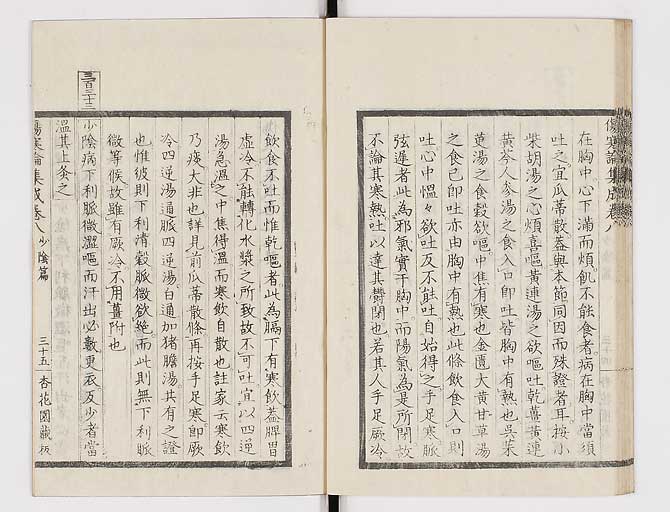 在胸中心下滿而煩飢不能食者病在胸中當須
吐之宜瓜蔕散蓋與本節同因而殊證者耳按小
柴胡湯之心煩喜嘔黃連湯之欲嘔吐乾薑黃連
黃芩人參湯之食入口即吐皆胸中有熱也吳茱
萸湯之食穀欲嘔中焦有寒也金匱大黃甘草湯
之食已即吐亦由胸中有熱也此條飲食入口則
吐心中慍々欲吐反不能吐自始得之手足寒脈
弦遲者此為邪氣實于胸中而陽氣為是所閉故
不論其寒熱吐以達其鬱閉也若其人手足厥冷
飲食不吐而惟乾嘔者此為膈下有寒飲蓋脾胃
虛冷不能轉化水漿之所致故不可吐宜以四逆
湯急溫之中焦得溫而寒飲自散也註家云寒飲
乃痰大非也詳見前瓜蔕散條再按手足寒即厥
冷四逆湯通脈四逆湯白通加猪膽湯共有之證
也惟彼則下利清穀脈微欲絕而此則無下利脈
微等候故雖有厥冷不用薑附也
三百三十三
少陰病下利脈微澀嘔而汗出必數更衣反少者當
溫其上灸之
傷寒論集成卷八
少陰篇
三十五
杏花園藏板